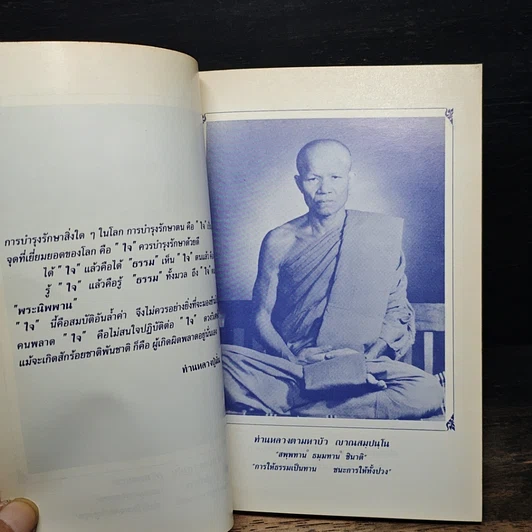 การบำรุงรักษาสิ่งใด ๆ ในโลก การบำรุงรักษาตน คือ "ใจ"
จุดที่เยี่ยมยอดของโลก คือ "ใจ" ควรบำรุงรักษาด้วยดี
ได้ "ใจ" แล้วคือได้ "ธรรม" เห็น "ใจ" ตนแล้ว
รู้ "ใจ" แล้วคือรู้ "ธรรม" ทั้งมวล ถึง "ใจ"
"พระนิพพาน"
"ใจ" นี้คือสมบัติอันล้ำค่า จึงไม่ควรอย่างยิ่งที่จะมอง
คนพลาด "ใจ" คือไม่สนใจปฏิบัติต่อ "ใจ"
แม้จะเกิดสักร้อยชาติพันชาติ ก็คือ ผู้เกิดผิดพลาดอยู่นั่นเอง
ท่านหลวงปู่มั่น
ท่านหลวงตามหาบัว ญาณสมฺปนฺโน
"สพฺพทานํ ธมฺมทานํ ชินาติ"
"การให้ธรรมเป็นทาน ชนะการให้ทั้งปวง"